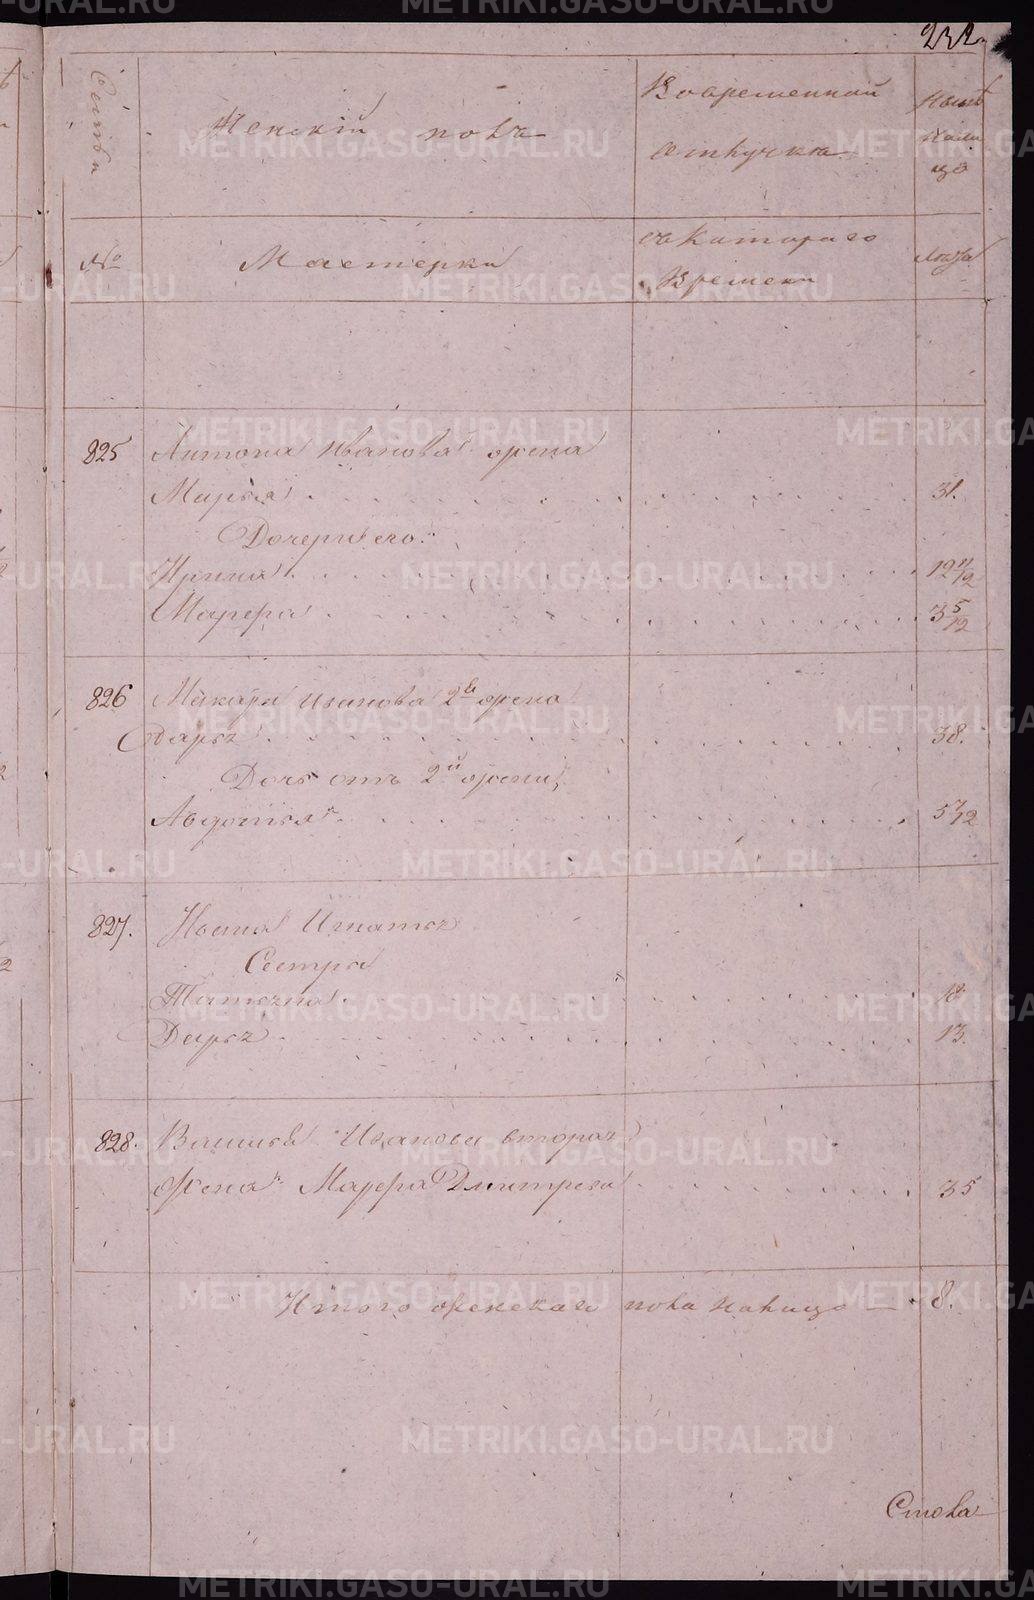 232.
Семьи
Женскій полъ
Во временной
отлучке
Ныне
на ли
цо
№
Мастерки
съ котораго
времени
Лета
825
Антона Иванова жена
Марья 31.
Дочери его.
Ирина 12 11/12
Марфа 3 5/12
826
Макара Иванова 2я жена
Дарья 38.
Дочь отъ 2й жены,
Авдотья
827.
Игнатья
Сестры
Татьяна 18
Дарья 13.
828.
Василья Иванова вторая
жена Марфа Дмитрева 35
Итого женскаго пола налицо — 8.
METRIKI.GASO-URAL.RU